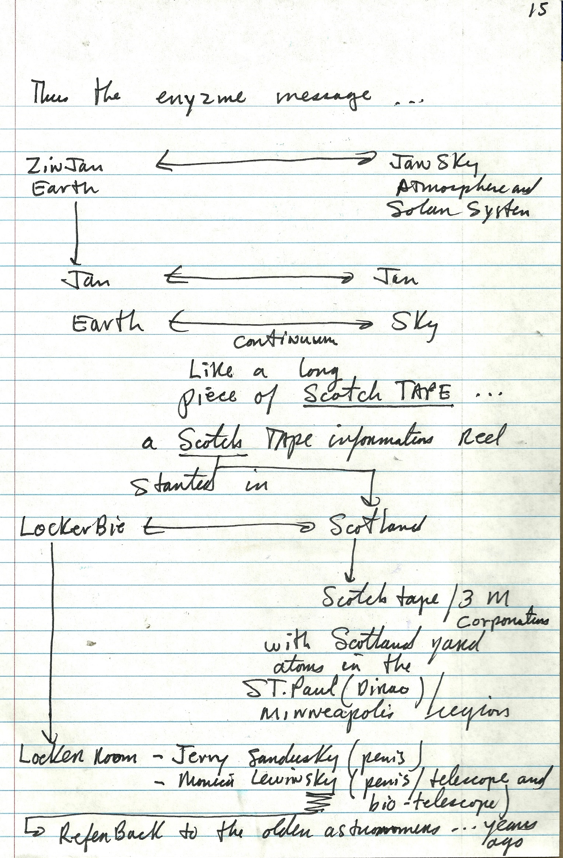 15
Thus the enyzme message ...
ZinJan ↔ JanSky
Earth Atmosphere and
Solar System
Jan ↔ Jan
Earth ↔ Sky
continuum
Like a long
piece of Scotch TAPE ...
a Scotch TAPE information Reel
Started in
LockerBie ↔ Scotland
Scotch tape / 3 M
Corporation
with Scotland yard
atoms in the
ST. Paul (Dirac) /
Minneapolis / region
Locker Room - Jerry Sandusky (penis)
- Monica Lewinsky (penis / telescope and
bio-telescope)
Refer Back to the olden astronomers ... years
ago